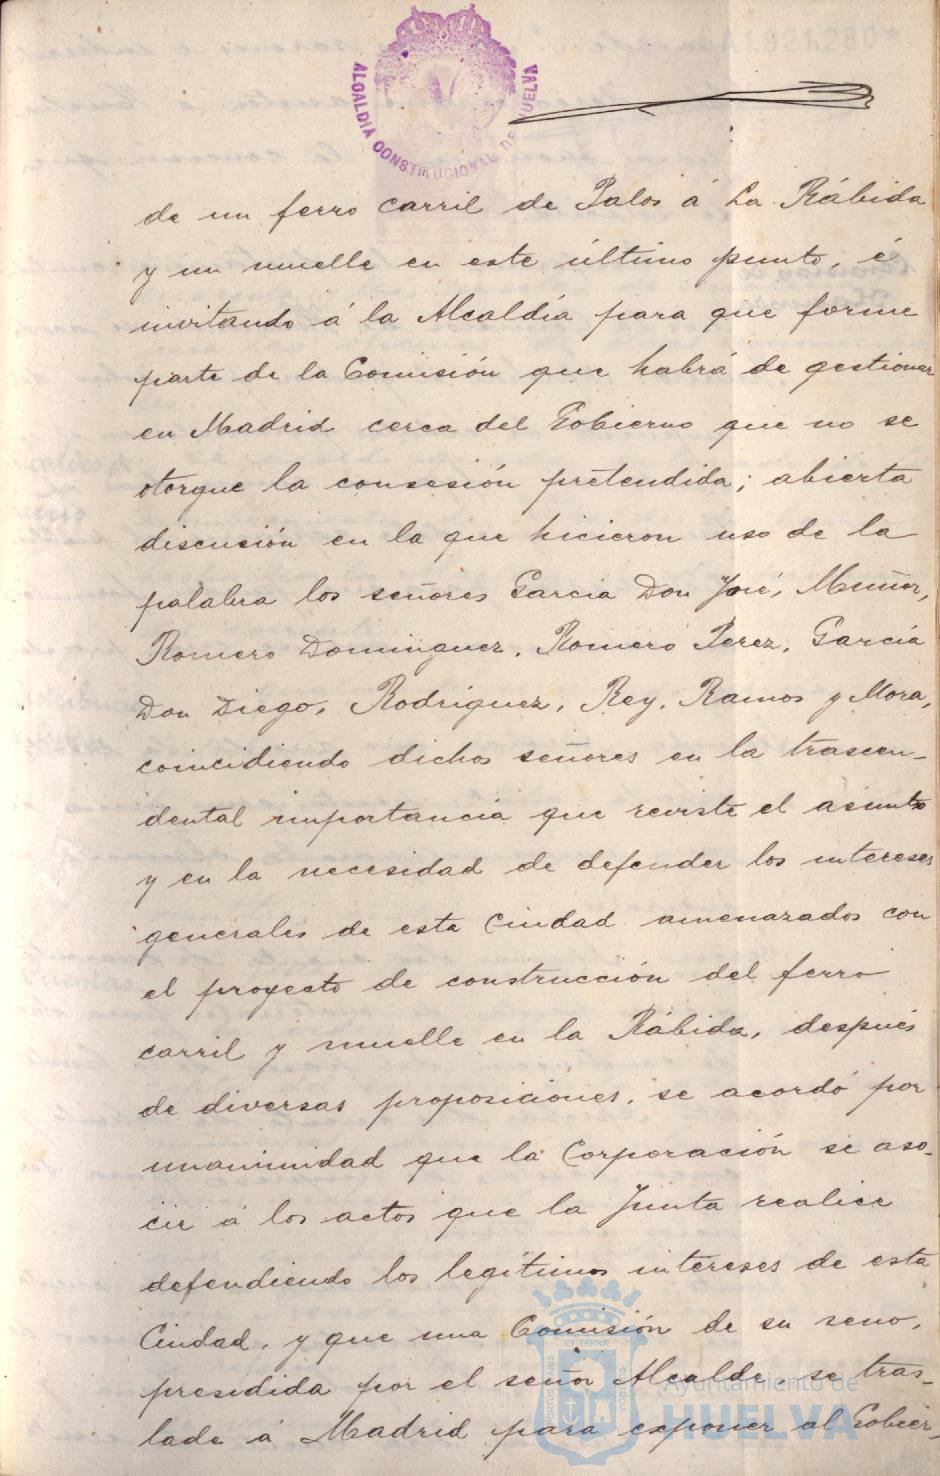 ALCALDIA CONSTITUCIONAL DE HUELVA
de un ferro carril de Palos á La Rábida
y un muelle en este último punto, é
invitando á la Alcaldía para que forme
parte de la Comisión que habrá de gestionar
en Madrid cerca del Gobierno que no se
otorgue la consesión pretendida; abierta
discusión en la que hicieron uso de la
palabra los señores Garcia Don José, Muñoz,
Romero Dominguez, Romero Perez, García
Don Diego, Rodriguez, Rey, Ramos y Mora,
coincidiendo dichos señores en la trascen-
dental importancia que reviste el asunto
y en la necesidad de defender los intereses
generales de esta Ciudad amenazados con
el proyecto de construcción del ferro
carril y muelle en la Rábida, después
de diversas proposiciones, se acordó por
unanimidad que la Corporación se aso-
cie á los actos que la Junta realice
defendiendo los legítimos intereses de esta
Ciudad, y que una Comisión de su seno,
presidida por el señor Alcalde, se tras-
lade á Madrid para exponer al Gobier-
Ayuntamiento de
HUELVA